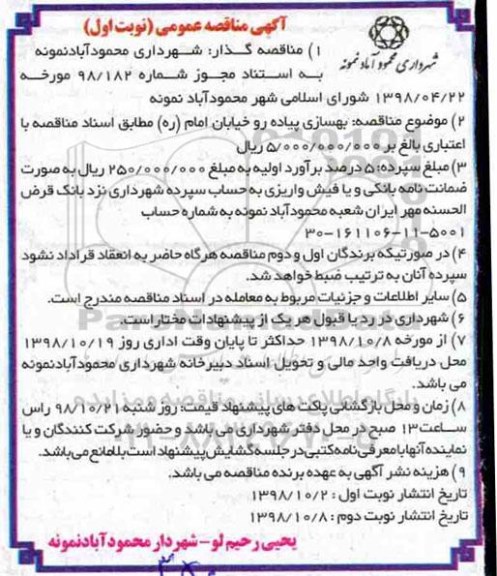 آگهی مناقصه عمومی (نوبت اول)
شهرداری محمودآباد نمونه
۱) مناقصه گذار: شهرداری محمودآبادنمونه
به استناد مجوز شماره ۹۸/۱۸۲ مورخه
۱۳۹۸/۰۴/۲۲ شورای اسلامی شهر محمودآباد نمونه
۲) موضوع مناقصه: بهسازی پیاده رو خیابان امام (ره) مطابق اسناد مناقصه با
اعتباری بالغ بر ۵/۰۰۰/۰۰۰/۰۰۰ ریال
۳) مبلغ سپرده: ۵ درصد برآورد اولیه به مبلغ ۲۵۰/۰۰۰/۰۰۰ ریال به صورت
ضمانت نامه بانکی و یا فیش واریزی به حساب سپرده شهرداری نزد بانک قرض
الحسنه مهر ایران شعبه محمودآباد نمونه به شماره حساب
۳۰-۱۶۱۱۰۶-۱۱-۵۰۰۱
۴) در صورتیکه برندگان اول و دوم مناقصه هرگاه حاضر به انعقاد قراداد نشود
سپرده آنان به ترتیب ضبط خواهد شد.
۵) سایر اطلاعات و جزئیات مربوط به معامله در اسناد مناقصه مندرج است.
۶) شهرداری در رد یا قبول هر یک از پیشنهادات مختار است.
۷) از مورخه ۱۳۹۸/۱۰/۸ حداکثر تا پایان وقت اداری روز ۱۳۹۸/۱۰/۱۹
محل دریافت واحد مالی و تحویل اسناد دبیرخانه شهرداری محمودآبادنمونه
می باشد.
۸) زمان و محل بازگشائی پاکت های پیشنهاد قیمت: روز شنبه ۹۸/۱۰/۲۱ راس
ساعت ۱۳ صبح در محل دفتر شهرداری می باشد و حضور شرکت کنندگان و یا
نماینده آنها با معرفی نامه کتبی در جلسه گشایش پیشنهاد است بلامانع می باشد.
۹) هزینه نشر آگهی به عهده برنده مناقصه می باشد.
تاریخ انتشار نوبت اول : ۱۳۹۸/۱۰/۲
تاریخ انتشار نوبت دوم : ۱۳۹۸/۱۰/۸
یحیی رحیم لو - شهردار محمودآبادنمونه